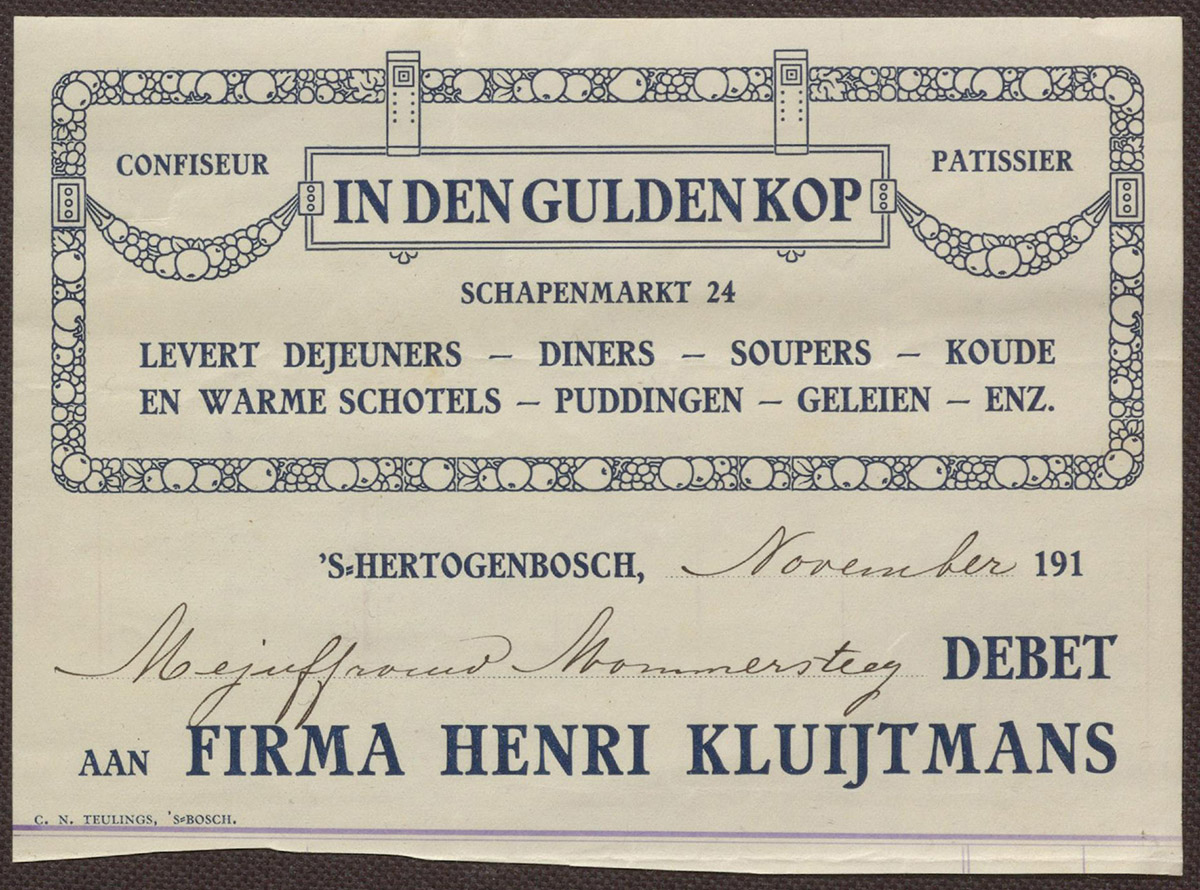 CONFISEUR
PATISSIER
IN DEN GULDEN KOP
SCHAPENMARKT 24
LEVERT DEJEUNERS – DINERS – SOUPERS – KOUDE
EN WARME SCHOTELS – PUDDINGEN – GELEIEN – ENZ.
'S-HERTOGENBOSCH, November 191
Mejuffrouw Mommersteeg DEBET
AAN FIRMA HENRI KLUIJTMANS
C. N. TEULINGS, 'S-BOSCH.